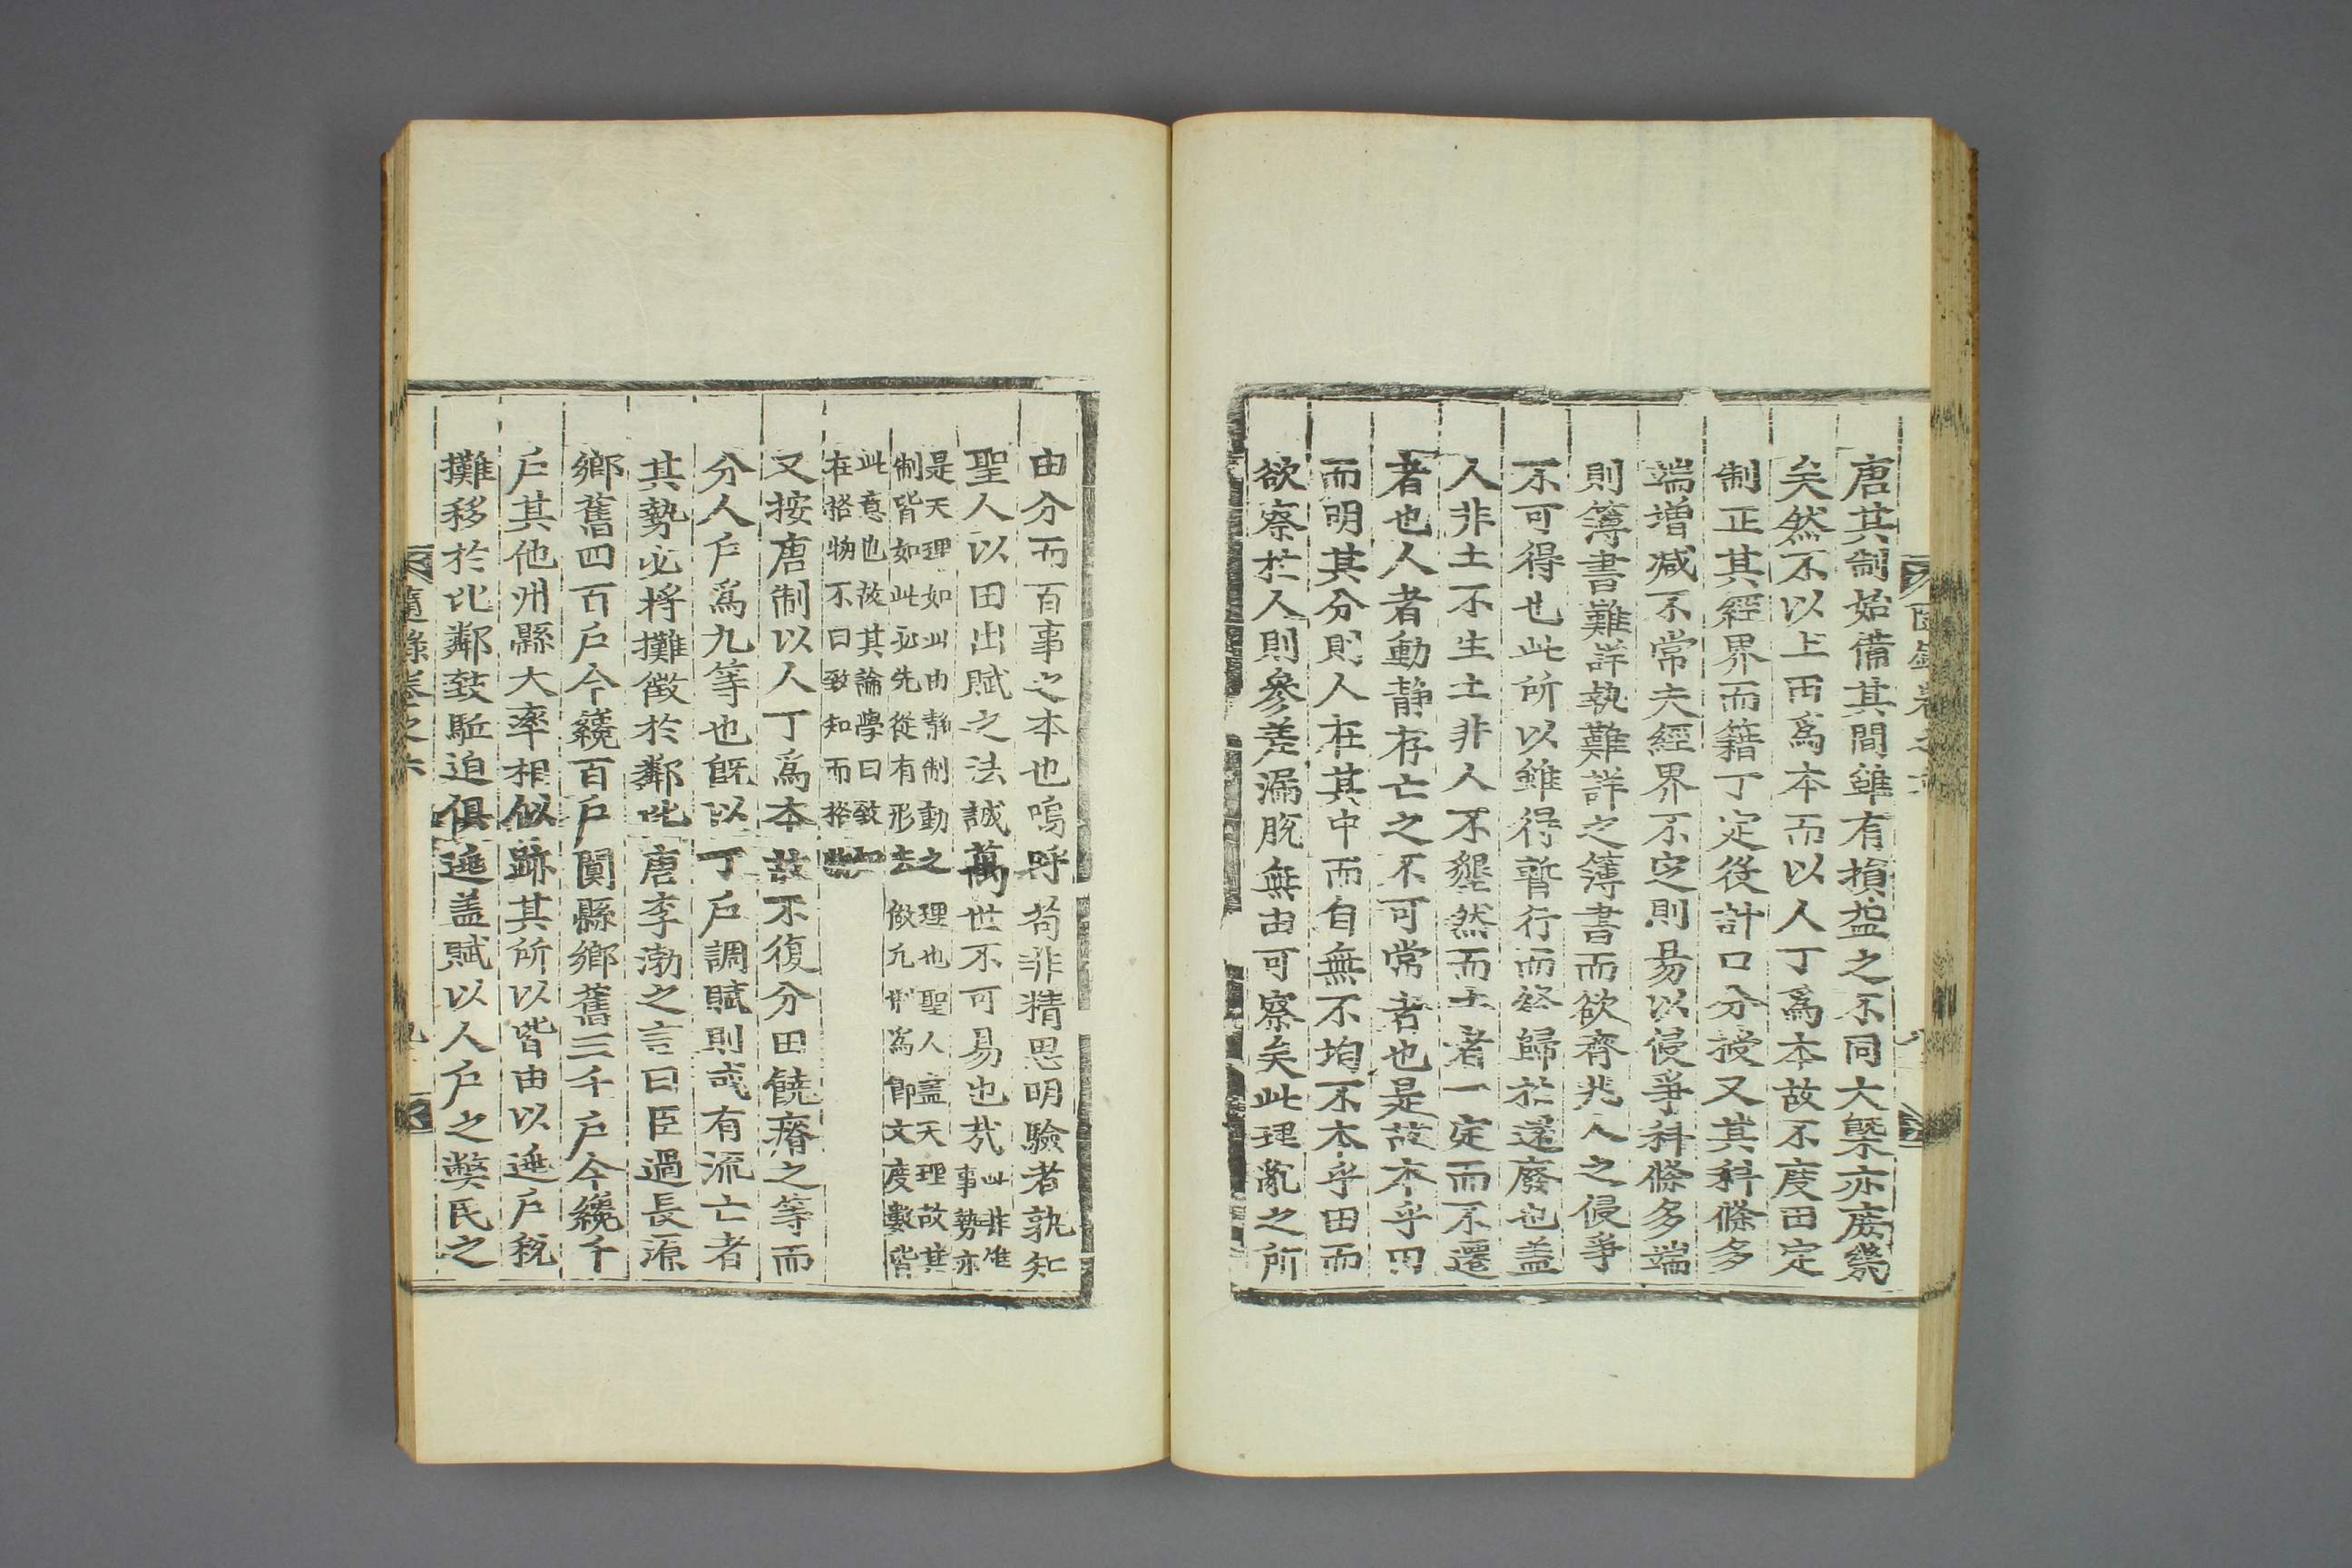 唐其制始備其間雖有損益之不同大槩亦庶幾
矣然不以土田爲本而以人丁爲本故不度田定
制正其經界而籍丁定後計口分授又其科條多
端增减不常夫經界不定則易以侵爭科條多端
則簿書難詳執難詳之簿書而欲齊兆人之侵爭
不可得也此所以雖得暫行而終歸於遂廢也盖
人非土不生土非人不墾然而土者一定而不遷
者也人者動静存亡之不可常者也是故本乎田
而明其分則人在其中而自無不均不本乎田而
欲察於人則參差漏脫無由可察矣此理亂之所
由分而百事之本也嗚呼苟非精思明驗者孰知
聖人以田出賦之法誠萬世不可易也㢤
此非唯
事勢亦
是天理如此由静制動之理也聖人盖天理故其
制皆如此必先從有形去做凡制爲節文度數皆
此意也故其論學曰致知
在格物不曰致知而格物
又按唐制以人丁爲本故不復分田饒瘠之等而
分人戶爲九等也旣以丁戶調賦則或有流亡者
其勢必將攤徵於鄰比唐李渤之言曰臣過長源
鄕舊四百戶今纔百戶闅縣鄕舊三千戶今纔千
戶其他州縣大率相似跡其所以皆由以逃戶稅
攤移於比鄰致駈迫俱逃盖賦以人戶之獘民之
隨錄卷之六
九